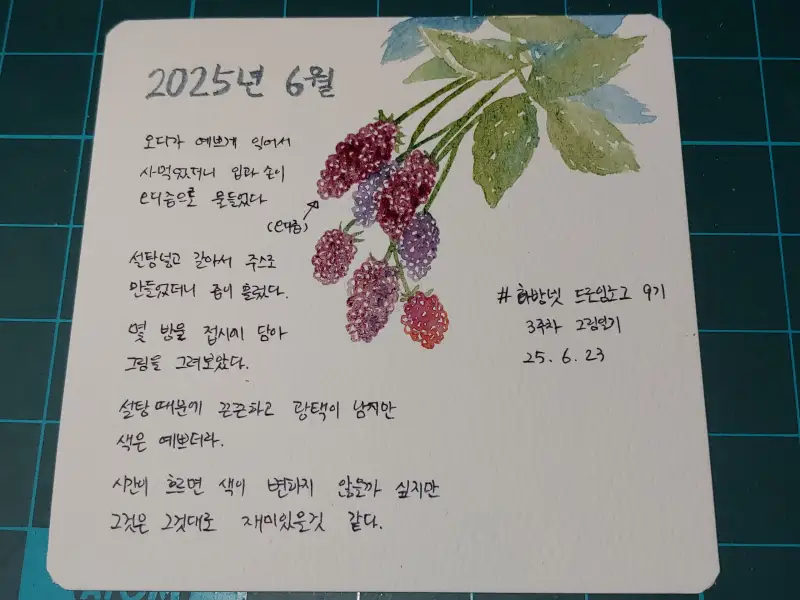 2025년 6월
오디가 예쁘게 익어서
사먹었더니 입과 손이
오디즙으로 물들었다
(오디즙)
설탕넣고 갈아서 주스로
만들었더니 즙이 흘렀다.
몇 방울 접시에 담아
그림을 그려보았다.
설탕 때문에 끈끈하고 광택이 남지만
색은 예쁘더라.
시간이 흐르면 색이 변하지 않을까 싶지만
그것은 그것대로 재미있을것 같다.
# 화반넷 드로잉노그 9기
3주차 그림일기
25. 6. 23